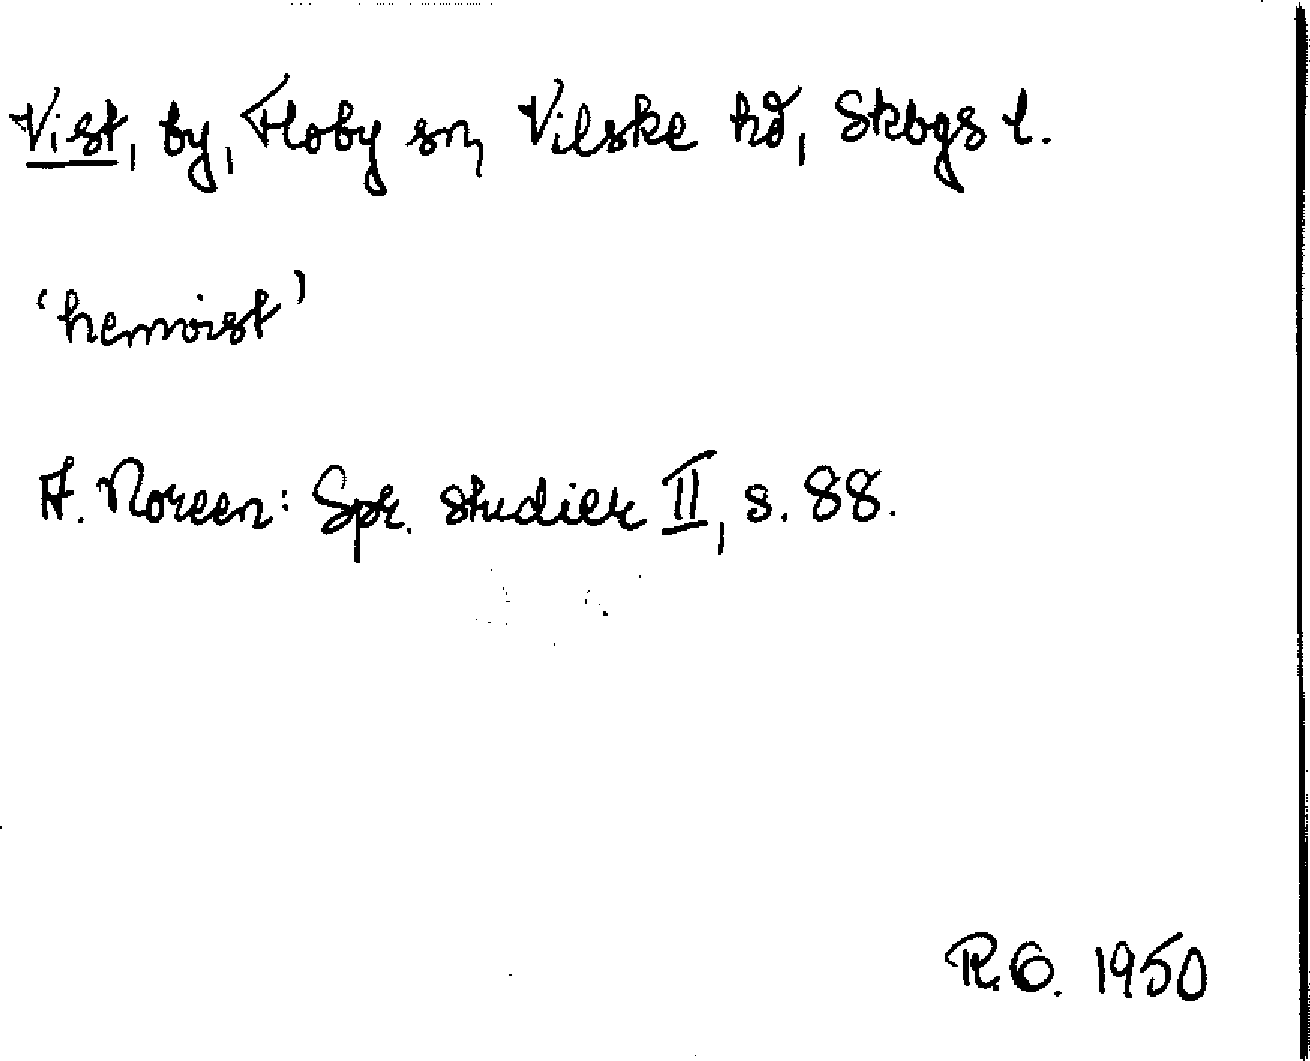 Vist, by, Floby sn, Vilske hd, Skbgs l.
'hemvist'
A. Noreen: Spr. studier II, s. 88.
R.O. 1950